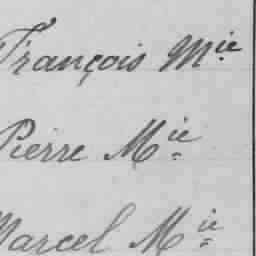 François Mie
Pierre Mie
Marcel Mie